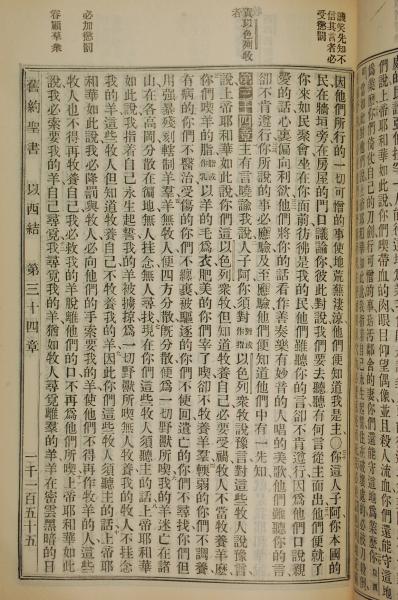 譏笑先知不
信其言者必
受懲罰
責以色列牧
者
必加懲罰
容顧羣衆
因他們所行的一切可憎的事使地荒蕪凄涼他們便知道我是主○你這人子阿你本國的
民在牆垣旁在房屋的門口議論你彼此對說我們要去聽聽有何言從主而出他們便就了
你來如民聚會坐在你面前彷彿是我的民他們雖聽你的言卻不肯遵行因爲他們口說親
愛的話心裏偏向利欲他們將你的話看作善奏樂有妙音的人唱的美歌他們雖聽你的言
卻不肯遵行你所說的事必應驗及至應驗他們便知道他們中有一先知
第三十四章主有言曉諭我說人子阿你須對對或作指以色列衆牧說豫言對這些牧人說豫言
說上帝耶和華如此說你們這以色列衆牧但知道牧養自己必要受禍牧人不當牧養羊麽
你們喫羊的脂脂或作乳以羊的毛爲衣肥美的你們宰了喫卻不牧養羊羣輭弱的你們不調養
有病的你們不醫治受傷的你們不纏裹被驅逐的你們不使回遺亡的你們不尋找你們但
用強暴殘刻轄制羊羣羊無牧人便四方分散旣分散便爲一切野獸所喫我的羊迷亡在諸
山在各高岡分散在徧地無人挂念無人尋找現在你們這些牧人須聽主的話上帝耶和華
如此說我指着自己永生起誓我的羊被擄掠爲一切野獸所喫無人牧養我的牧人不挂念
我的羊這些牧人但知道牧養自己不牧養我的羊因此你們這些牧人須聽主的話上帝耶
和華如此說我必降罰與牧人必向他們的手索要我的羊使他們不得再作牧羊的人這些
牧人也不得再牧養自己我必救我的羊脫離他們的口不再爲他們所喫上帝耶和華如此
說我必索要我的羊自己尋覓我尋覓我的羊猶如牧人尋覓離羣的羊在密雲黑暗的日
舊約聖書 以西結 第三十四章 一千一百五十五